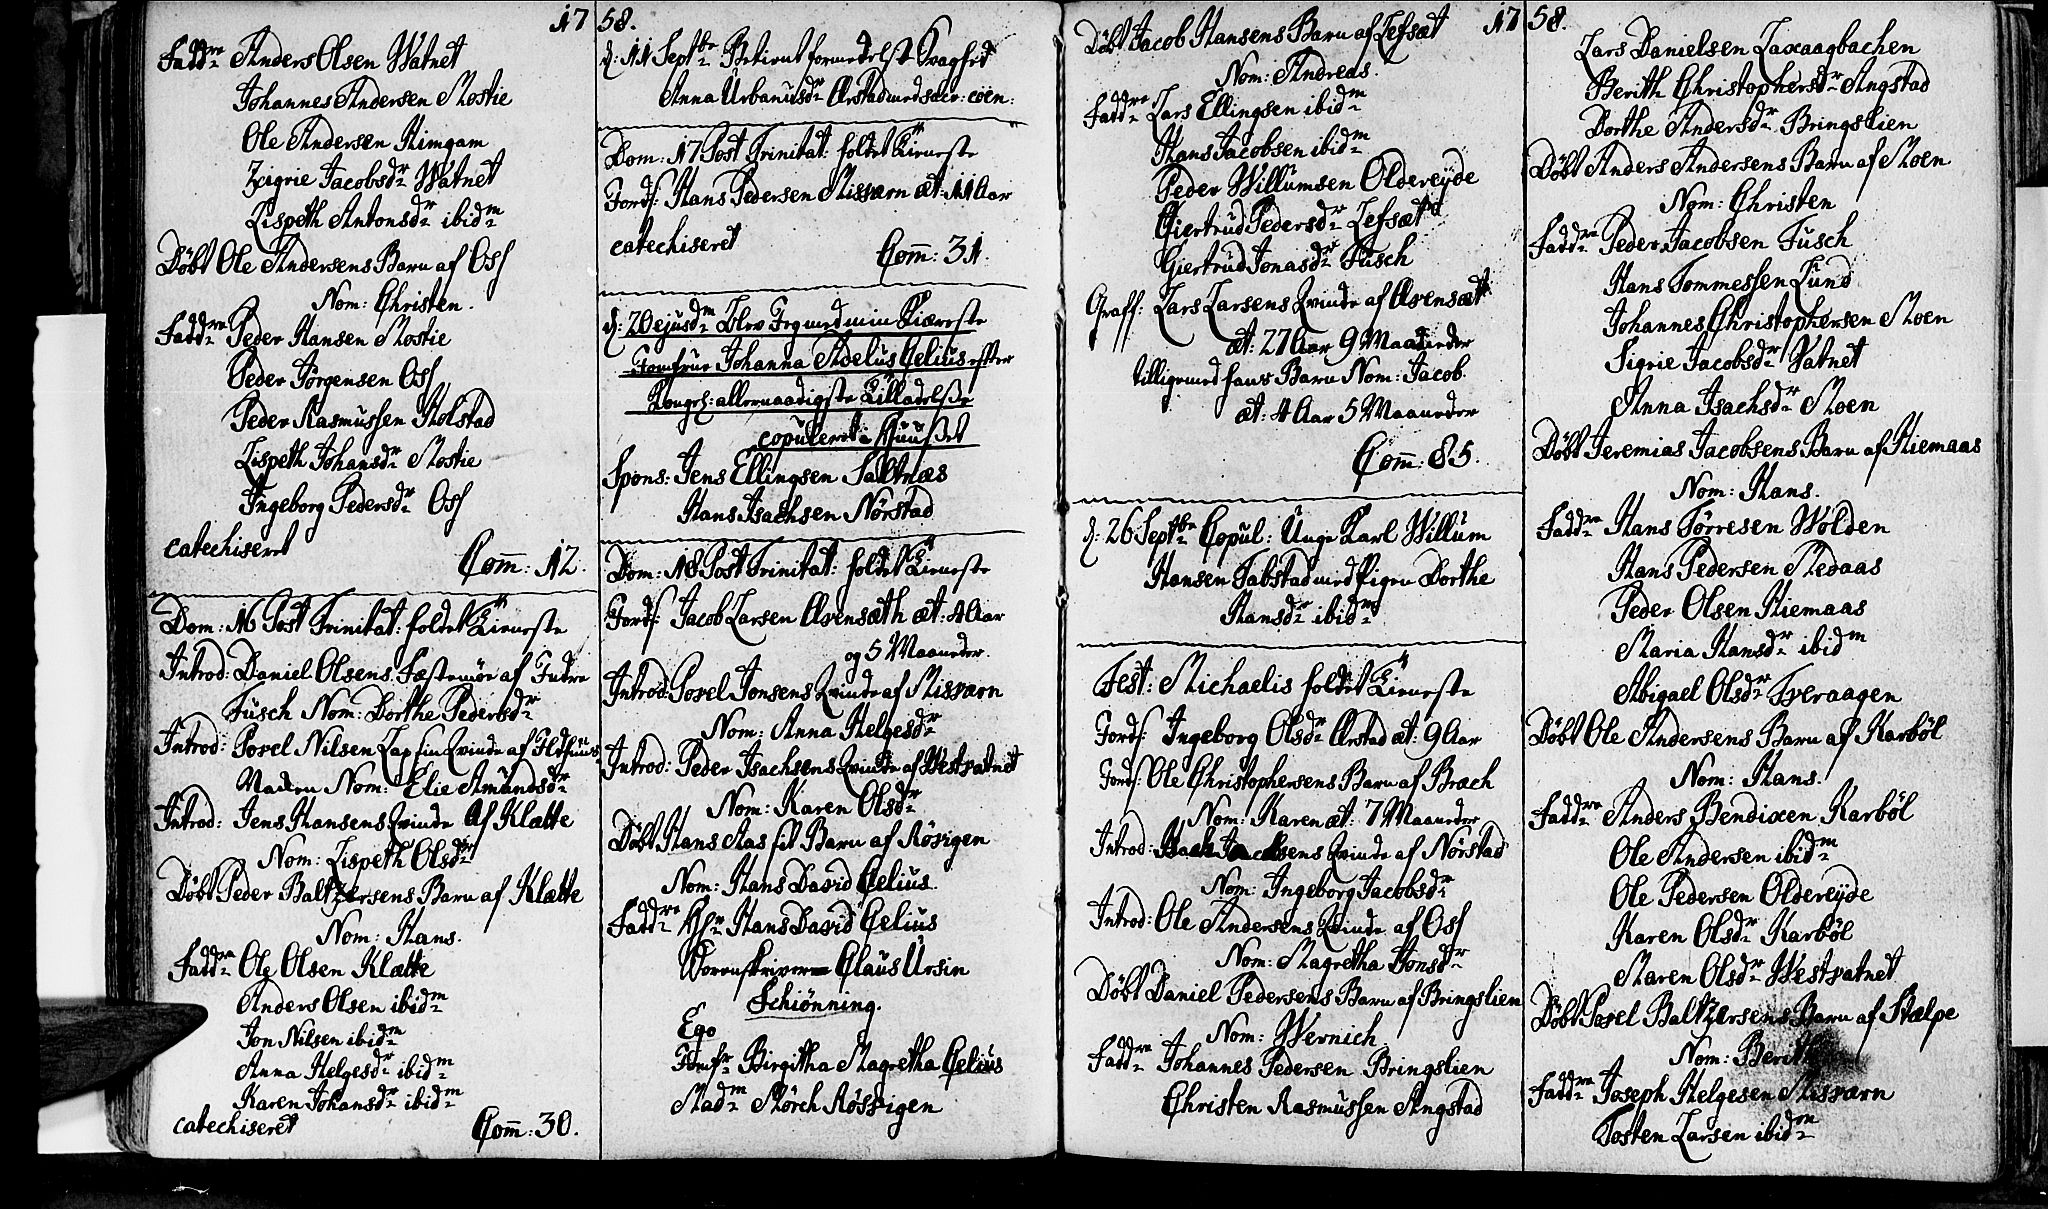 17 58.
Faddre Anders Olsen Watnet
Johannes Andersen Mostie
Ole Andersen Himgam
Zigrie Jacobsdr Watnet
Lispeth Antonsdr ibidm
Døbt Ole Andersens Barn af Oss
Nom: Christen.
Faddre Peder Hansen Mostie
Peder Jørgensen Oss
Peder Rasmussen Holstad
Lispeth Johansdr Mostie
Ingeborg Pedersdr Oss
catechiseret
Com̄: 12.
Dom: 16 Post Trinitat: holdet Tieneste
Introd: Daniel Olsens Fæstemøe af Indre
Fusch Nom: Dorthe Pedersdr
Introd: Povel Nilsen Lap sin Qvinde af Ildhuus
Maden Nom: Elie Amundsdr
Introd: Jens Hansens Qvinde af Klætte
Nom: Lispeth Olsdr
Døbt Peder Baltzersens Barn af Klætte
Nom: Hans.
Faddre Ole Olsen Klætte
Anders Olsen ibidm
Jon Nilsen ibidm
Anna Helgesdr ibidm
Karen Johansdr ibidm
catechiseret
Com̄: 30.
d: 11 Septbr Betient formedelst Svaghed
Anna Urbanusdr Ørstad med sacr: coen:
Dom: 17 Post Trinitat: holdet Tieneste
Jords: Hans Pedersen Misværn æt: 11 Aar
catechiseret
Com̄: 31.
d: 20 ejusdm blev Jeg med min Kiæreste
Jomfrue Johanna Adelus Celius efter
Kongel: allernaadigste Tilladelse
copuleret i Huuset
Spons: Jens Ellingsen Saltnæs
Hans Isachsen Nørstad
Dom: 18 Post Trinitat: holdet Tieneste
Jords: Jacob Larsen Øvensæth æt: 4 Aar
og 5 Maaneder.
Introd: Povel Jonsens Qvinde af Misværn
Nom: Anna Helgesdr
Introd: Peder Isachsens Qvinde af Westvatnet
Nom: Karen Olsdr
Døbt Hans Aas sit Barn af Røsvigen
Nom: Hans David Celius.
Faddre Hr Hans David Celius
Sorenskriveren Claus Ursin
Schiønning.
Ego
Jomfr Birgitha Magretha Celius
Madm Mørch Røssvigen
17 58.
Døbt Jacob Hansens Barn af Lefsæt
Nom: Andreas.
Faddre Lars Ellingsen ibidm
Hans Jacobsen ibidm
Peder Willumsen Oldereyde
Giertrud Pedersdr Lefsæt
Giertrud Jonasdr Fusch
Graff: Lars Larsens Qvinde af Øvensæt
æt: 27 Aar 9 Maaneder
tilligemed hans Barn Nom: Jacob.
æt: 4 Aar 5 Maaneder
Com̄: 85.
d: 26 Septbr Copul: Unge Karl Willum
Hansen Tabstad med Pigen Dorthe
Hansdr ibidm
Fest: Michaelis holdet Tieneste
Jords: Ingeborg Olsdr Ørstad æt: 9 Aar
Jords: Ole Christophersens Barn af Brach
Nom: Karen æt: 7 Maaneder
Introd: Isach Isachsens Qvinde af Nørstad
Nom: Ingeborg Jacobsdr
Introd: Ole Andersens Qvinde af Oss
Nom: Magretha Jonsdr
Døbt Daniel Pedersens Barn af Bringslien
Nom: Wernich
Faddre Johannes Pedersen Bringslien
Christen Rasmussen Angstad
Lars Danielsen Laxaagbachen
Berith Christophersdr Angstad
Dorthe Andersdr Bringslien
Døbt Anders Andersens Barn af Moen
Nom: Christen
Faddre Peder Jacobsen Fusch
Hans Tommessen Lund
Johannes Christophersen Moen
Sigrie Jacobsdr Vatnet
Anna Isachsdr Moen
Døbt Jeremias Jacobsens Barn af Hiemaas
Nom: Hans.
Faddre Hans Tørresen Wolden
Hans Pedersen Medaas
Peder Olsen Hiemaas
Maria Hansdr ibidm
Abigael Olsdr Tveraagen
Døbt Ole Andersens Barn af Karbøl
Nom: Hans.
Faddre Anders Bendixen Karbøl
Ole Andersen ibidm
Ole Pedersen Oldereyde
Karen Olsdr Karbøl
Maren Olsdr Westvatnet
Døbt Povel Baltzersens Barn af Stolpe
Nom: Berith
Faddre Joseph Helgesen Misværn
Tosten Larsen ibidm